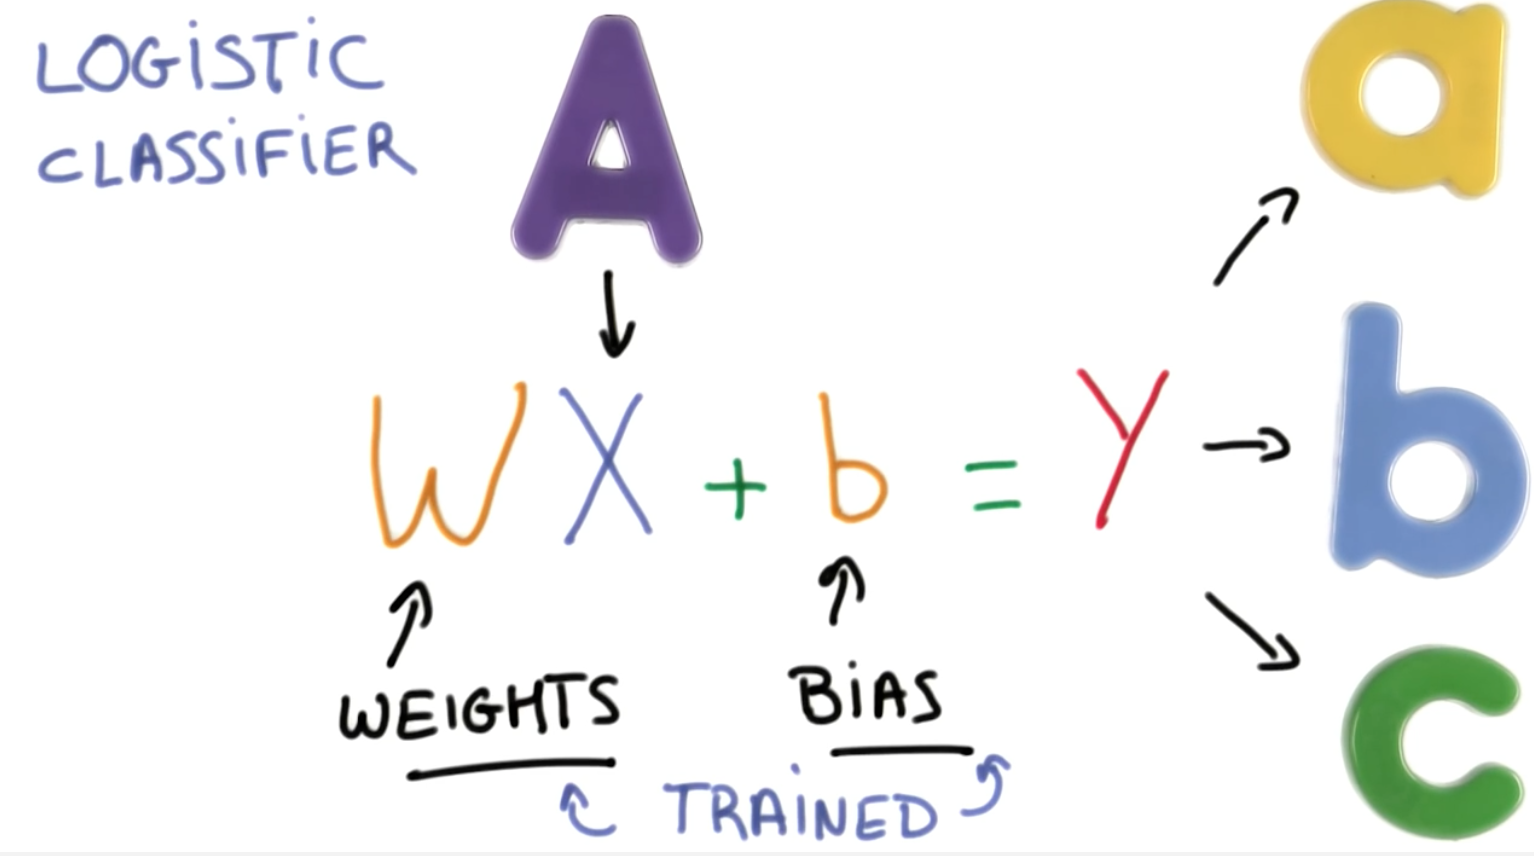 LOGiSTiC
CLASSiFiER
A
a
W X + b = Y
b
WEIGHTS
BiAS
c
TRAiNED